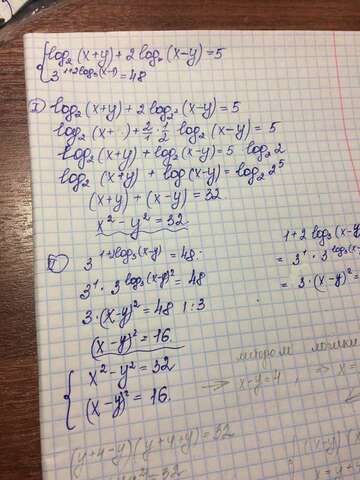 log₂(x+y)+2log₄(x-y)=5
3^(1+2log₃(x-y))=48
I) log₂(x+y)+2log₂²(x-y)=5
log₂(x+ )+2/1·1/2 log₂(x-y)=5
log₂(x+y)+log₂(x-y)=5 log₂2
log₂(x+y)+log(x-y)=log₂2⁵
(x+y)+(x-y)=32
x²-y²=32
3^(1+2log₃(x-y))=48
3¹·3^(log₃(x-y)²)=48
3·(x-y)²=48 |:3
(x-y)²=16.
x²-y²=32
(x-y)²=16.
1+2log₃(x-y
=3¹·3^(log₃(x-y
=3·(x-y)²=
методом
→ x-y=4,
(y+4-y)(y+4+y)=32